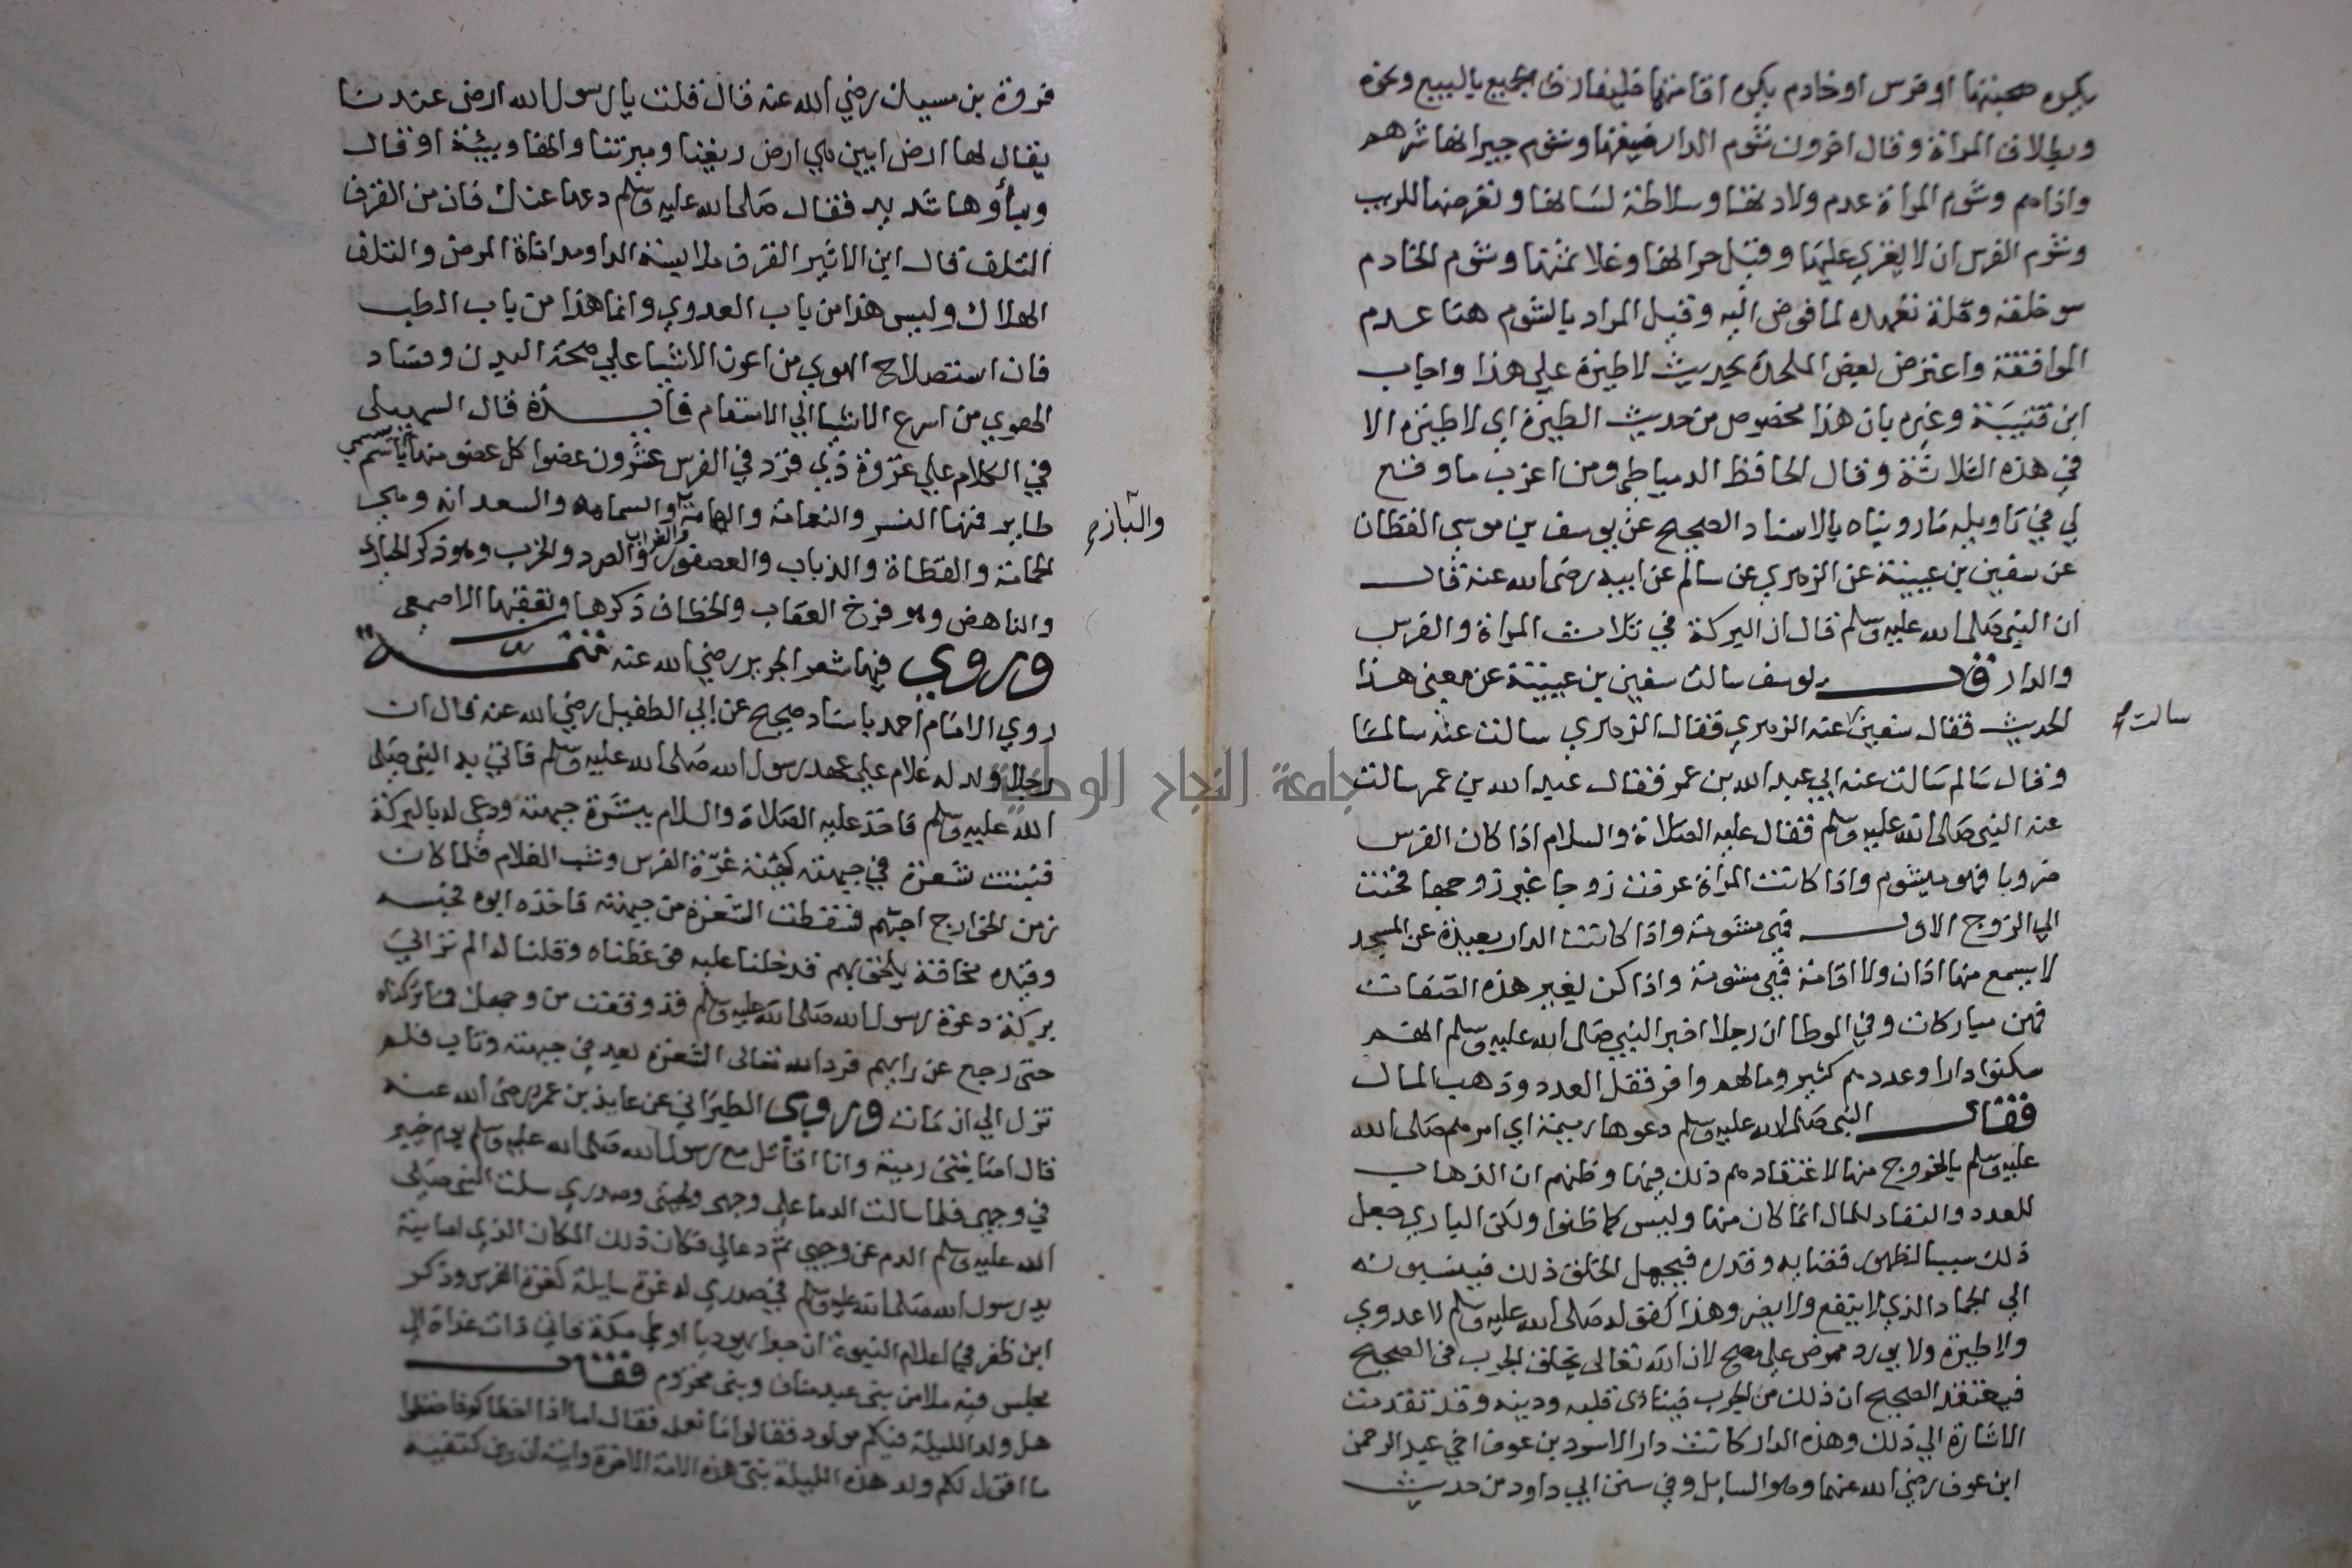 يكره صحبتها او فرس او خادم يكره اقامتهما فليفارق الجميع بالبيع ونحوه
وبطلاق المراة وقال اخرون شوم الدار ضيقها وشوم جيرانها شرهم
واذاهم وشوم المراة عدم ولادتها وسلاطة لسانها وتعرضها للريب
وشوم الفرس ان لا يغزي عليها وقيل حرانها وغلا ثمنها وشوم الخادم
سو خلقه وقلة تعهده لما فوض اليه وقيل المراد بالشوم هنا عدم
الموافقة واعترض بعض الملحدة بحديث لا طيرة علي هذا واجاب
ابن قتيبة وغيره بان هذا مخصوص من حديث الطيرة اي لا طيرة الا
في هذه الثلاثة وقال الحافظ الدمياطي ومن اغرب ما وقع
لي في تاويله ما رويناه بالاسناد الصحيح عن يوسف بن موسي القطان
عن سفين بن عيينة عن الزهري عن سالم عن ابيه رضي الله عنه قال
ان النبي صلى الله عليه وسلم قال ان البركة في ثلاث المراة والفرس
والدار قال يوسف سالت سفين بن عيينة عن معنى هذا
الحديث فقال سفين عنه الزهري فقال الزهري سالت عنه سالما
سالت
وقال سالم سالت عنه ابي عبد الله بن عمر فقال عبد الله بن عمر سالت
عنه النبي صلى الله عليه وسلم فقال عليه الصلاة والسلام اذا كان الفرس
ضروبا فهو ميشوم واذا كانت المراة عرفت زوجا غير زوجها فحنت
الي الزوج الاول فهي مشومة واذا كانت الدار بعيدة عن المسجد
لا يسمع منها اذان ولا اقامة فهي مشومة واذا كن بغير هذه الصفات
فهن مباركات وفي الموطا ان رجلا اخبر النبي صلى الله عليه وسلم انهم
سكنوا دارا وعددهم كثير ومالهم وافر فقل العدد وذهب المال
فقال النبي صلى الله عليه وسلم دعوها ذميمة اي امرهم صلى الله
عليه وسلم بالخروج منها لاعتقادهم ذلك فيها وظنهم ان الذهاب
للعدد والنفاد للمال انما كان منها وليس كما ظنوا ولكن الباري جعل
ذلك سببا لظهور قضايه وقدره فيجهل الخلق ذلك فينسبونه
الي الجماد الذي لا ينفع ولا يضر وهذا كقوله صلى الله عليه وسلم لا عدوي
ولا طيرة ولا يورد ممرض علي مصح لان الله تعالى يخلق الجرب في الصحيح
فيعتقد الصحيح ان ذلك من الجرب فيتاذى قلبه ودينه وقد تقدمت
الاشارة الي ذلك وهذه الدار كانت دار الاسود بن عوف اخي عبد الرحمن
ابن عوف رضي الله عنهما وهو السايل وفي سنن ابي داود من حديث
فروة بن مسيك رضي الله عنه قال قلت يا رسول الله ارض عندنا
يقال لها ارض ابين هي ارض ريفنا وميرتنا وانها وبيئة او قال
وباؤها شديد فقال صلى الله عليه وسلم دعها عنك فان من القرف
التلف قال ابن الاثير القرف ملابسة الدا ومداناة المرض والتلف
الهلاك وليس هذا من باب العدوي وانما هذا من باب الطب
فان استصلاح الهوي من اعون الاشيا علي صحة البدن وفساد
الهوي من اسرع الاشيا الي الاسقام فايدة قال السهيلى
في الكلام علي غزوة ذي قرد في الفرس عشرون عضوا كل عضو منها يسمى باسم
طاير فمنها النسر والنعامة والهامة والسمامه والسعدانه وهي
والباز
الحمامة والقطاة والذباب والعصفور والغراب والصرد والخرب وهو ذكر الحبارى
والناهض وهو فرخ العقاب والخطاف ذكرها وبقيتها الاصمعى
وروي فيها شعر الجرير رضي الله عنه تتمة
روي الامام احمد باسناد صحيح عن ابي الطفيل رضي الله عنه قال ان
رجلا ولد له غلام علي عهد رسول الله صلى الله عليه وسلم فاتي به النبي صلى
الله عليه وسلم فاخذ عليه الصلاة والسلام ببشرة جبهته ودعي له بالبركة
فنبتت شعرة في جبهته كهيئة غرة الفرس وشب الغلام فلما كان
زمن الخوارج احبهم فسقطت الشعرة من جبهته فاخذه ابوه فحبسه
وقيده مخافة يلحق بهم فدخلنا عليه فوعظناه وقلنا له الم تر الي
بركة دعوة رسول الله صلى الله عليه وسلم قد وقعت من وجهك فما تركناه
حتى رجع عن رايهم فرد الله تعالى الشعرة بعد في جبهته وتاب فلم
تزل الي ان مات وروى الطبراني عن عايذ بن عمرو رضي الله عنه
قال اصابتني رمية وانا اقاتل مع رسول الله صلى الله عليه وسلم يوم خيبر
في وجهي فلما سالت الدما علي وجهى ولحيتى وصدري سلت النبي صلى
الله عليه وسلم الدم عن وجهي ثم دعا لي فكان ذلك المكان الذي اصابته
يد رسول الله صلى الله عليه وسلم في صدري له غرة سايلة كغرة الفرس وذكر
ابن ظفر في اعلام النبوة ان حبرا يهوديا اوطن مكة فاتي ذات غداة الى
مجلس فيه ملا من بنى عبد مناف وبنى مخزوم فقال
هل ولد الليلة فيكم مولود فقالوا ما نعلم فقال اما اذا اخطاكم فاحفظوا
ما اقول لكم ولد هذه الليلة نبي هذه الامة الاخرة وايته ان بين كتفيه
جامعة النجاح الوطنية